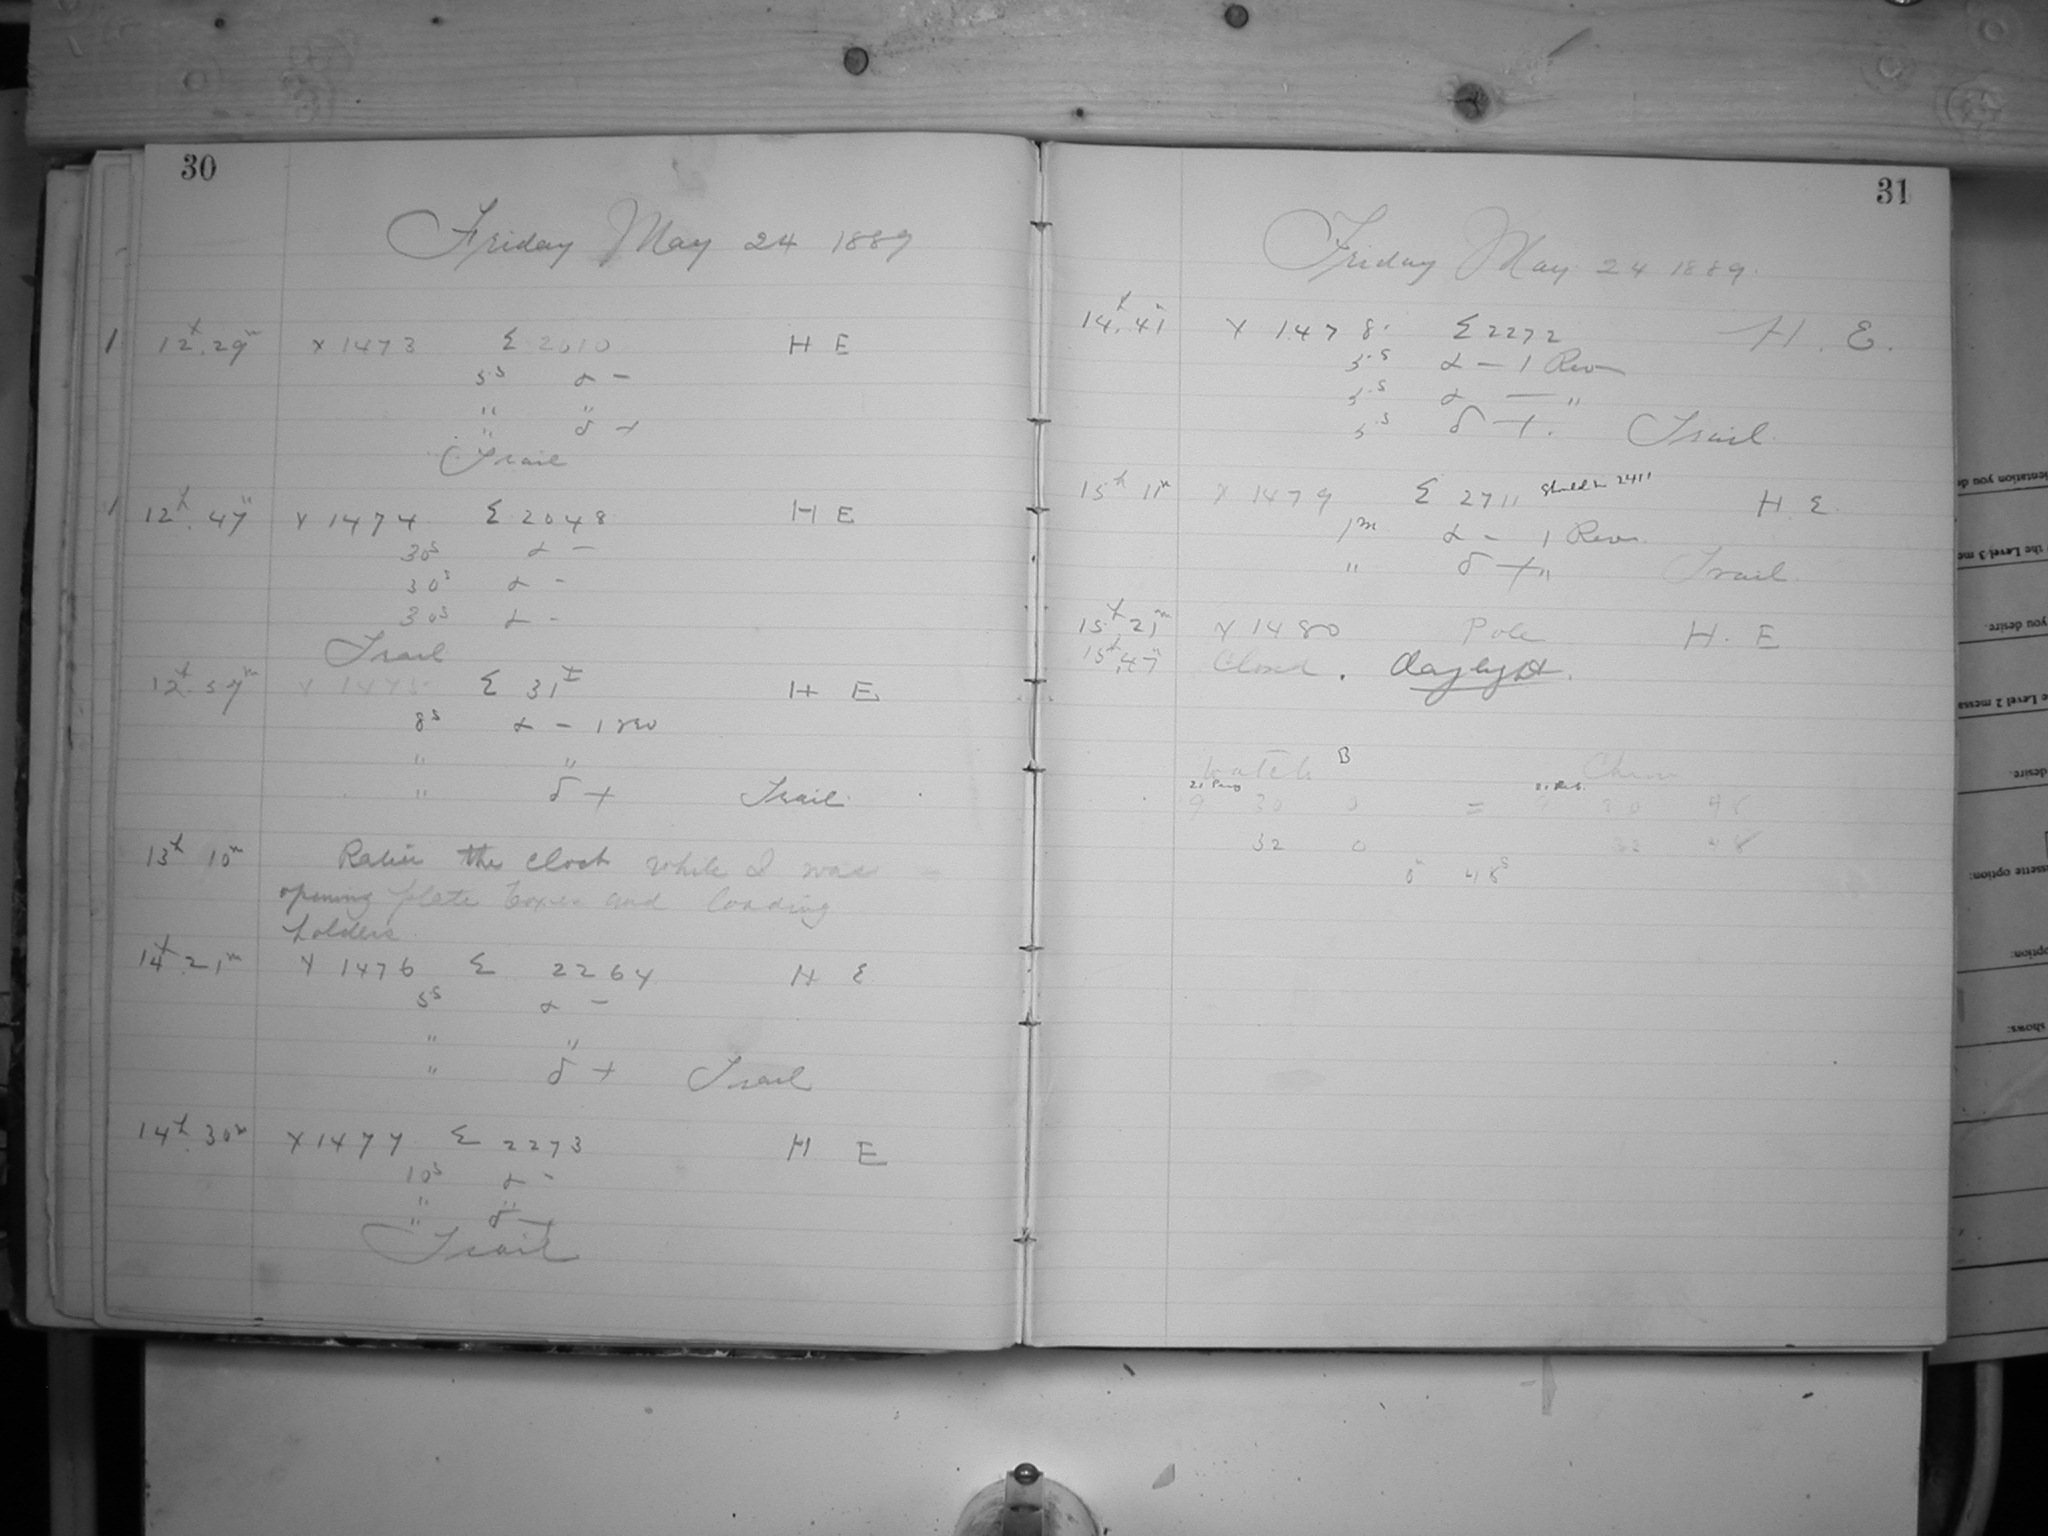 30
Friday May 24 1889
1 12h.29m x 1473 Σ 2010 H E
5s α –
" "
" δ +
Trail
1 12h.47m x 1474 Σ 2048 H E
30s α –
30s α –
30s α –
Trail
12h.57m x 1475 Σ 31I H E
8s α – 1 rev
" "
" δ + Trail
13h 10m the clock while I was
opening plate boxes and loading
holders.
14h 21m x 1476 Σ 2264 H E
5s α –
" "
" δ + Trail
14h 30m x 1477 Σ 2273 H E
10s α –
" "
" δ –
Trail
31
Friday May 24 1889.
14h.41m x 1478 Σ 2272 H. E.
5s α – 1 Rev
5s α – "
5s δ +. Trail
15h 11m x 1479 Σ 2711 should be 2411 H. E.
1m α – 1 Rev
" δ + " Trail
15h 21m x 1480 Pole H. E
15h.47m Closed. daylight.
Watch B Chron
9 30 0 = 9 30 48
32 0 32 48
0m 48s
entation you de
the Level 3 me
you desire.
e Level 2 messa
desire.
ssette option:
option:
shows: